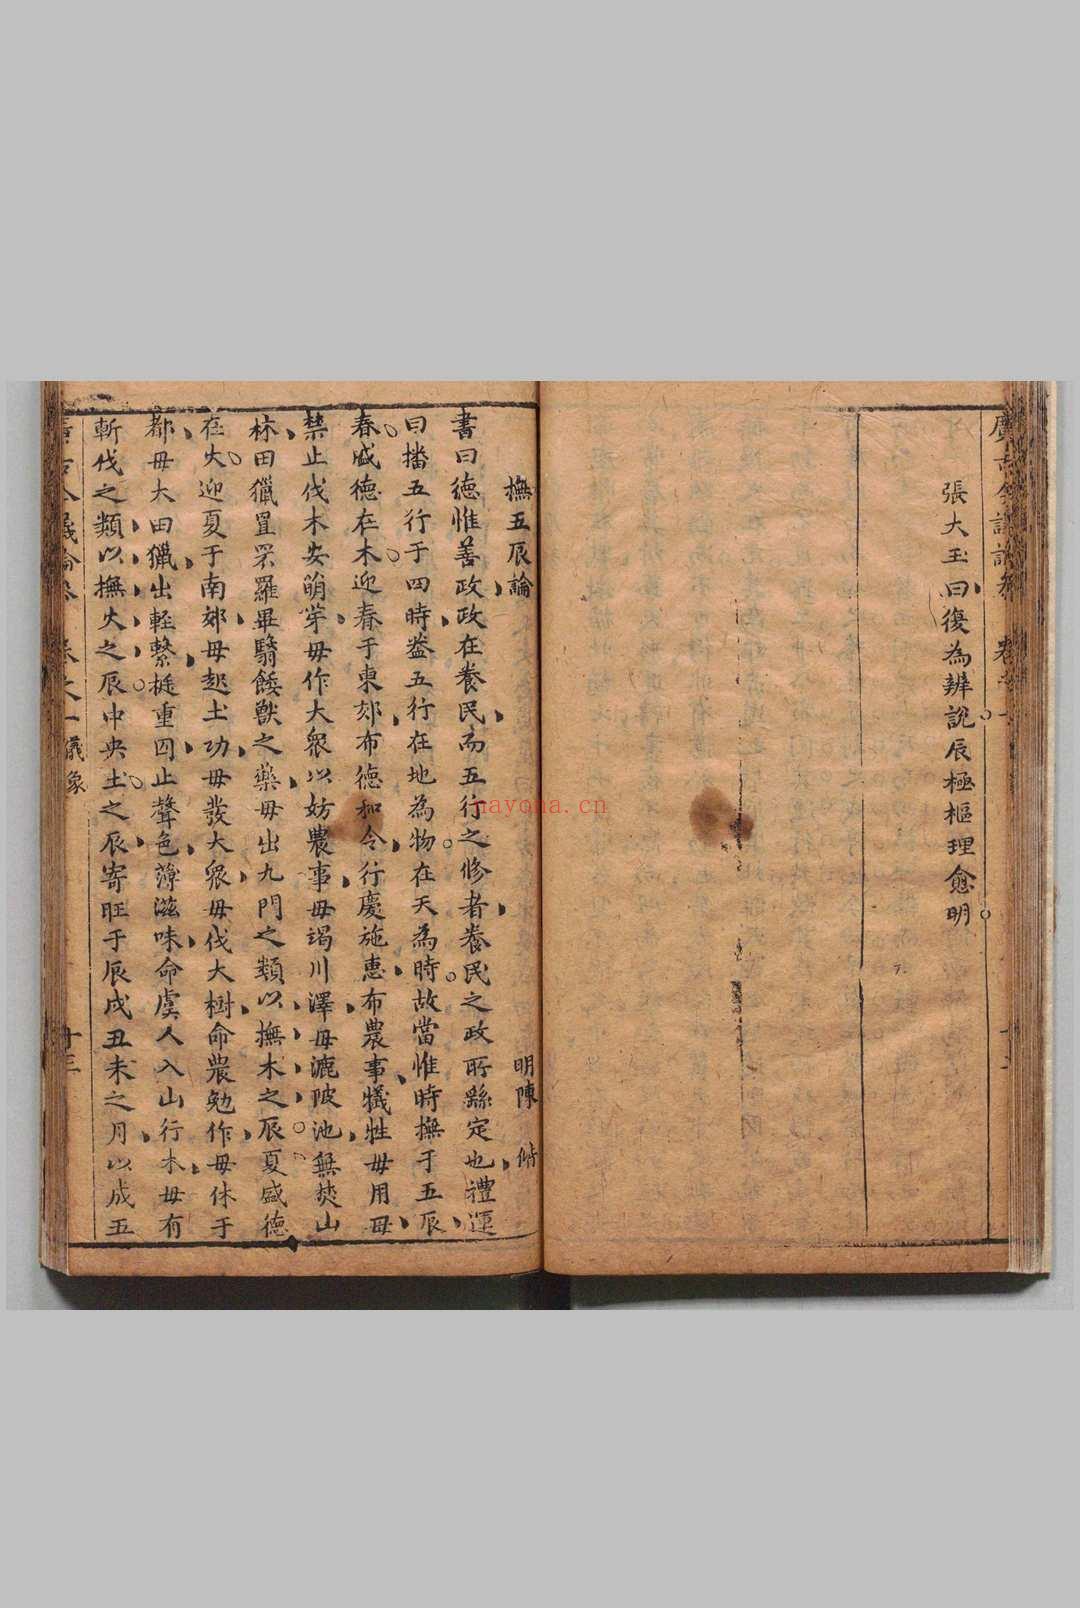 張大玉曰復為辨說辰極樞理愈明
撫五辰論 明陳 偹
書曰德惟善政政在養民而五行之修者養民之政所繇定也禮運
曰播五行于四時盖五行在地為物在天為時故當惟時撫于五辰
春盛德在木迎春于東郊布德和令行慶施惠布農事犧牲毋用毋
禁止伐木安萌芽毋作大衆以妨農事毋竭川澤毋漉陂池無焚山
林田獵罝罘羅畢翳餧獸之藥毋出九門之類以撫木之辰夏盛德
在火迎夏于南郊毋起土功毋發大衆毋伐大樹命農勉作毋休于
都毋大田獵出輕繫挺重囚止聲色薄滋味命虞人入山行木毋有
斬伐之類以撫火之辰中央土之辰寄旺于辰戌丑未之月以成五
卷之一 儀象 十三
nayona.cn